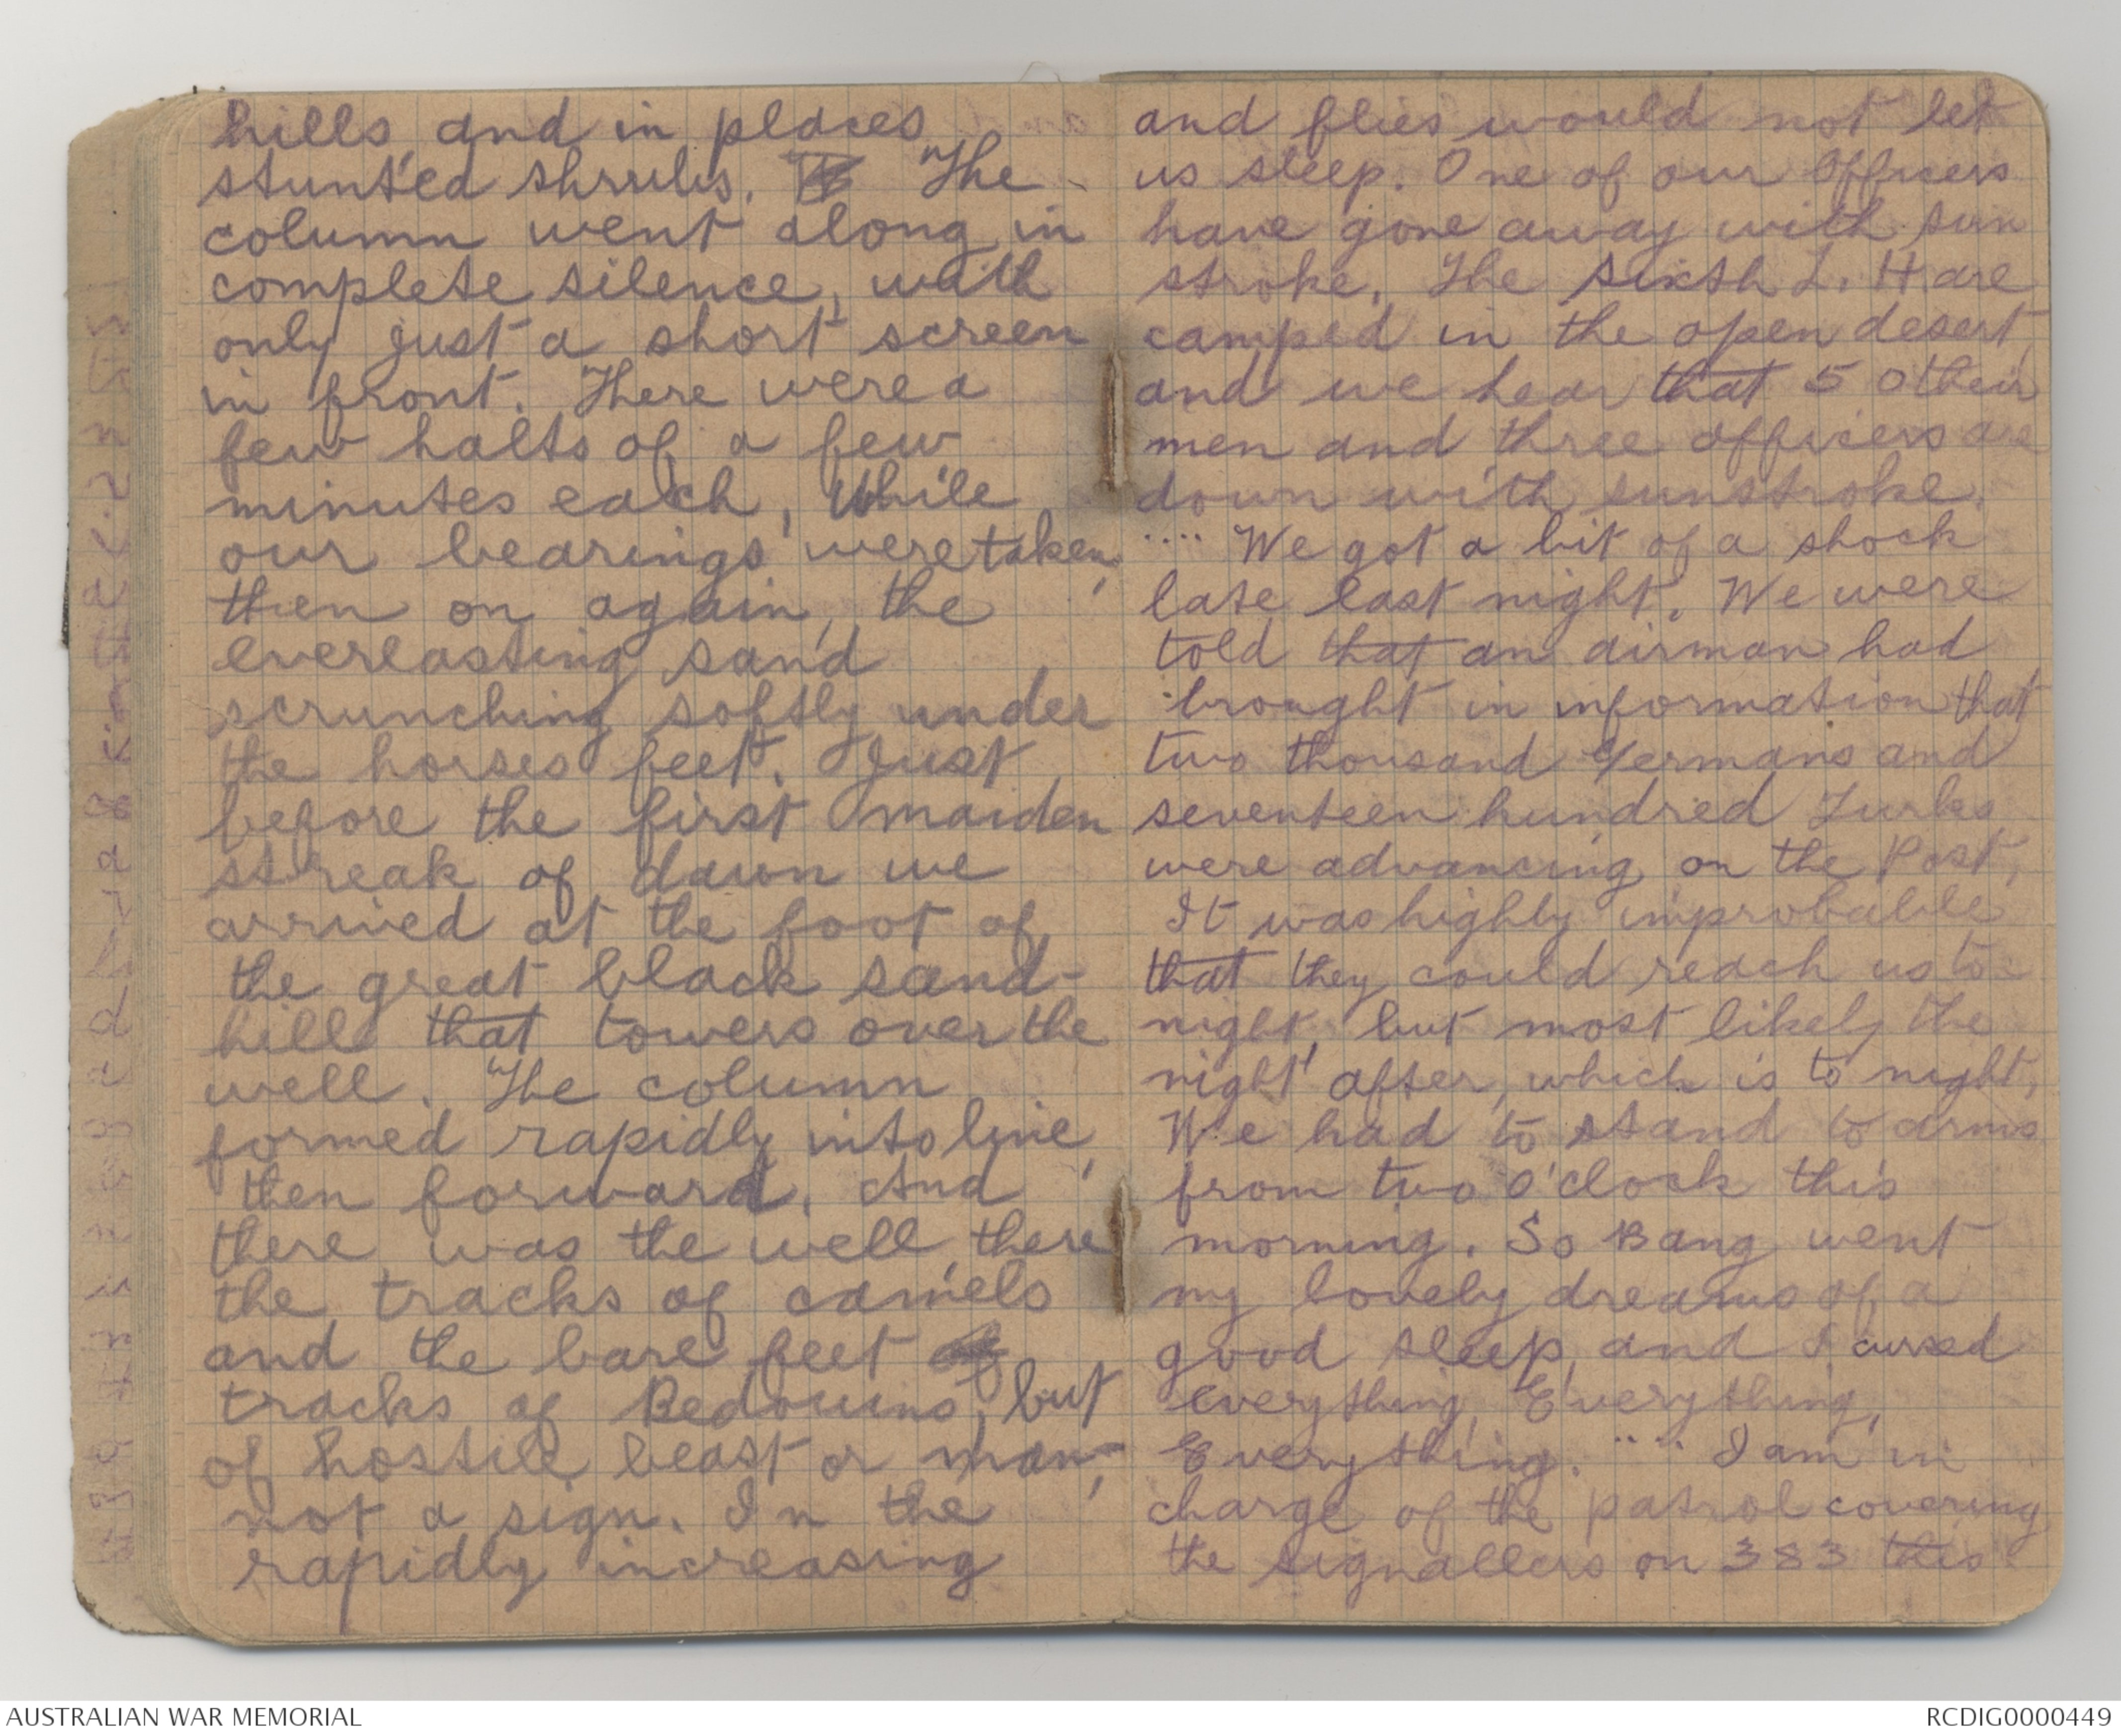 hills, and in places
stunted shrubs. The
column went along in
complete silence, with
only just a short screen
in front. There were a
few halts of a few
minutes each, while
our bearings were taken,
then on again, the
everlasting sand
scrunching softly under
the horses feet. Just
before the first maiden
streak of dawn we
arrived at the foot of
the great black sand-
hill that towers over the
well. The column
formed rapidly into line,
then forward. And
there was the well, there
the tracks of camels
and the bare feet
tracks of Bedouins, but
of hostile beast or man,
not a sign. In the
rapidly increasing
and flies would not let
us sleep. One of our Officers
have gone away with sun
stroke. The sixth L. H are
camped in the open desert,
and we hear that 50 their
men and three officers are
down with sunstroke.
.... We got a bit of a shock
late last night. We were
told that an airman had
brought in information that
two thousand Germans and
seventeen hundred Turks
were advancing on the Post,
It was highly improbable
that they could reach us to-
night, but most likely the
night after, which is to night,
We had to stand to arms
from two o'clock this
morning. So Bang went
my lovely dreams of a
good sleep, and I cursed
everything, Everything,
Everything. .... I am in
charge of the patrol covering
the signallers on 383 this
AUSTRALIAN WAR MEMORIAL
RCDIG0000449